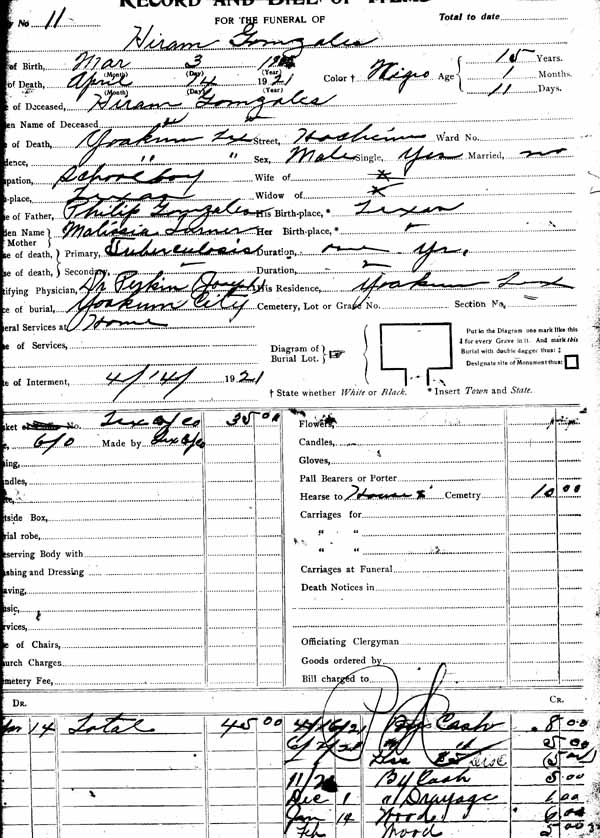 RECORD AND BILL OF ITEMS
No 11 FOR THE FUNERAL OF Total to date
Hiram Gomzales
of Birth, Mar 3 (Month) (Day) (Year) 15 Years.
of Death, April 14 1921 (Month) (Day) (Year) Color † Nigro Age 1 Months.
11 Days.
of Deceased, Hiram Gomzales
en Name of Deceased
of Death, Yoakum Tex Street, Hochheim Ward No.
dence, " " Sex, Male Single, Yes Married, no
pation, School boy Wife of
place, Texas Widow of
of Father, Philip Gomzales His Birth-place, * Texas
den Name Mother Malissia Turner Her Birth-place, * "
e of death, Primary, Tuberculosis Duration, one Yr.
e of death, Secondary, Duration,
ifying Physician, Dr Perkin Joseph His Residence, Yoakum Tex
e of burial, Yoakum City Cemetery, Lot or Grave No. Section No.
neral Services at Home
e of Services,
Diagram of Burial Lot.
Put in the Diagram one mark like this
‡ for every Grave in it. And mark this
Burial with double dagger thus: ‡
Designate site of Monument thus:
te of Interment, 4/14/ 1921
† State whether White or Black. * Insert Town and State.
sket No. Tex C/Co 35 00 Flowers,
6/0 Made by Tex C/Co Candles,
ing, Gloves,
ndles, Pall Bearers or Porter
te, Hearse to House & Cemetry 10 00
tside Box, Carriages for
rial robe, " "
eserving Body with " "
shing and Dressing Carriages at Funeral
aving, Death Notices in
usic,
rvices,
e of Chairs, Officiating Clergyman
urch Charges Goods ordered by
metery Fee, Bill charged to
Dr. Cr.
Apr 14 Total 45 00 4/16/21 By Cash 8 00
6/2/21 " " 5 00
Disc (5 00)
11/2 By Cash 5 00
Dec 1 " Drayage 1 00
Jan 14 Wood 6 00
Feb Wood 5 00